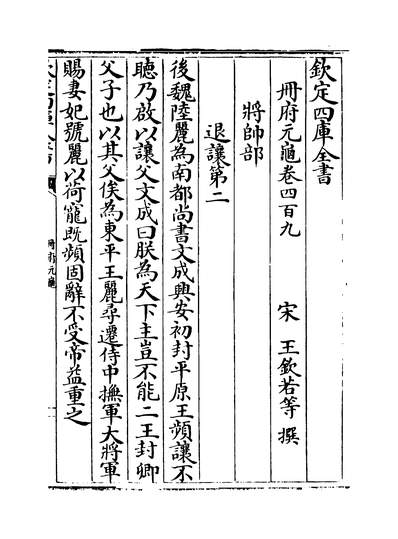 欽定四庫全書
冊府元龜卷四百九
宋 王欽若等 撰
將帥部
退讓第二
後魏陸麗為南都尚書文成興安初封平原王頻讓不
聽乃啟以讓父文成曰朕為天下主豈不能二王封卿
父子也以其父俟為東平王麗尋遷侍中撫軍大將軍
賜妻妃號麗以荷寵既頻固辭不受帝益重之
冊府元龜